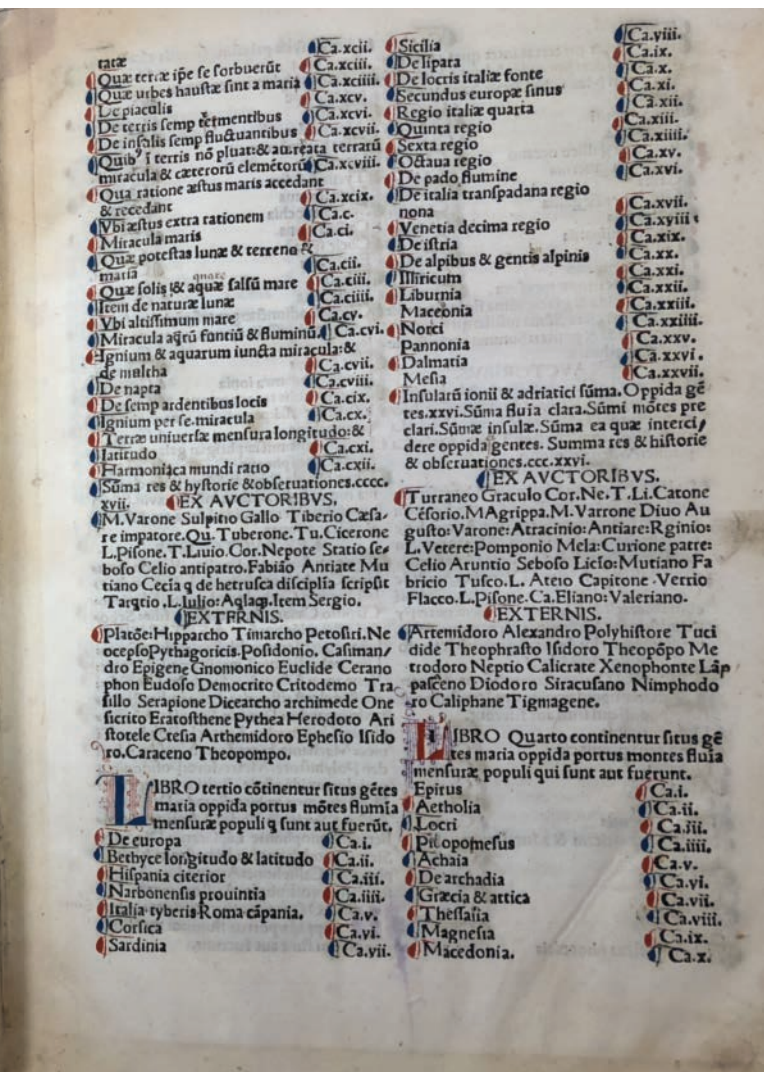 tatæ Ca.xcii.
Quæ terræ ip̄e se sorbuerūt Ca.xciii.
Quæ urbes haustæ sint a maria Ca.xciiii.
De piaculis Ca.xcv.
De terris semp trementibus Ca.xcvi.
De insulis semp fluctuantibus Ca.xcvii.
Quibꝰ ī terris nō pluat: & aureata terrarū
miracula & cæterorū elemētorū Ca.xcviii.
Qua ratione æstus maris accedant
& recedant Ca.xcix.
Vbi æstus extra rationem Ca.c.
Miracula maris Ca.ci.
Quæ potestas lunæ & terreno &
maria Ca.cii.
Quæ solis & aquæ salsū mare Ca.ciii.
Item de naturæ lunæ Ca.ciiii.
Vbi altissimum mare Ca.cv.
Miracula aq̄rū fontiū & fluminū. Ca.cvi.
Ignium & aquarum iuncta miracula: &
de maltha Ca.cvii.
De napta Ca.cviii.
De semp ardentibus locis Ca.cix.
Ignium per se. miracula Ca.cx.
Terræ uniuersæ mensura longitudo: &
latitudo Ca.cxi.
Harmoniaca mundi ratio Ca.cxii.
Sūma res & hystorie & obseruationes.cccc.
xvii. EX AVCTORIBVS.
M. Varone Sulpitio Gallo Tiberio Cæsa/
re impatore. Qu. Tuberone. Tu. Cicerone
L. Pisone. T. Liuio. Cor. Nepote Statio se/
boso Celio antipatro. Fabião Antiate Mu
tiano Cecia q de hetrusca disciplīa scripsit
Tarqtio. L. Iulio: Aqlaq. Item Sergio.
EXTERNIS.
Platōe: Hipparcho Timarcho Petosiri. Ne
ocepso Pythagoricis. Posidonio. Casiman/
dro Epigene Gnomonico Euclide Cerano
phon Eudoso Democrito Critodemo Tra
sillo Serapione Dicearcho archimede One
sicrito Eratosthene Pythea Herodoto Ari
stotele Ctesia Arthemidoro Ephesio Isido
ro. Caraceno Theopompo.
LIBRO tertio cōtinentur situs gētes
maria oppida portus mōtes flumīa
mensuræ populi q sunt aut fuerūt.
De europa Ca.i.
Bethyce longitudo & latitudo Ca.ii.
Hispania citerior Ca.iii.
Narbonensis prouintia Ca.iiii.
Italia tyberis Roma cāpania. Ca.v.
Corsica Ca.vi.
Sardinia Ca.vii.
Sicilia Ca.viii.
De lipara Ca.ix.
De locris italiæ fonte Ca.x.
Secundus europæ sinus Ca.xi.
Regio italiæ quarta Ca.xii.
Quinta regio Ca.xiii.
Sexta regio Ca.xiiii.
Octaua regio Ca.xv.
De pado flumine Ca.xvi.
De italia transpadana regio
nona Ca.xvii.
Venetia decima regio Ca.xviii.
De istria Ca.xix.
De alpibus & gentis alpinis Ca.xx.
Illiricum Ca.xxi.
Liburnia Ca.xxii.
Maceonia Ca.xxiii.
Norci Ca.xxiiii.
Pannonia Ca.xxv.
Dalmatia Ca.xxvi.
Mesia Ca.xxvii.
Insularū ionii & adriatici sūma. Oppida gē
tes.xxvi. Sūma fluīa clara. Sūmi mōtes pre
clari. Sūmæ insulæ. Sūma ea quæ interci/
dere oppida gentes. Summa res & historie
& obseruationes.ccc.xxvi.
EX AVCTORIBVS.
Turraneo Graculo Cor. Ne. T. Li. Catone
Cēsorio. M Agrippa. M. Varrone Diuo Au
gusto: Varone: Atracinio: Antiare: Rginio:
L. Vetere: Pomponio Mela: Curione patre:
Celio Aruntio Seboso Licīo: Mutiano Fa
bricio Tusco. L. Ateio Capitone. Verrio
Flacco. L. Pisone. Ca. Eliano: Valeriano.
EXTERNIS.
Artemidoro Alexandro Polyhistore Tuci
dide Theophrasto Isidoro Theopōpo Me
trodoro Neptio Calicrate Xenophonte Lāp
pasceno Diodoro Siracusano Nimphodo
ro Caliphane Tigmagene.
LIBRO Quarto continentur situs gē
tes maria oppida portus montes fluīa
mensuræ populi qui sunt aut fuerunt.
Epirus Ca.i.
Aetholia Ca.ii.
Locri Ca.iii.
Pilopomesus Ca.iiii.
Achaia Ca.v.
De archadia Ca.vi.
Græcia & attica Ca.vii.
Thessasia Ca.viii.
Magnesia Ca.ix.
Macedonia. Ca.x.